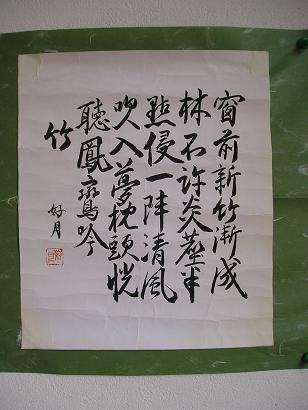 窗前新竹漸成
林不許炎塵半
點侵一陣清風
吹入夢枕頭恍
聽鳳鸞吟
竹
好月